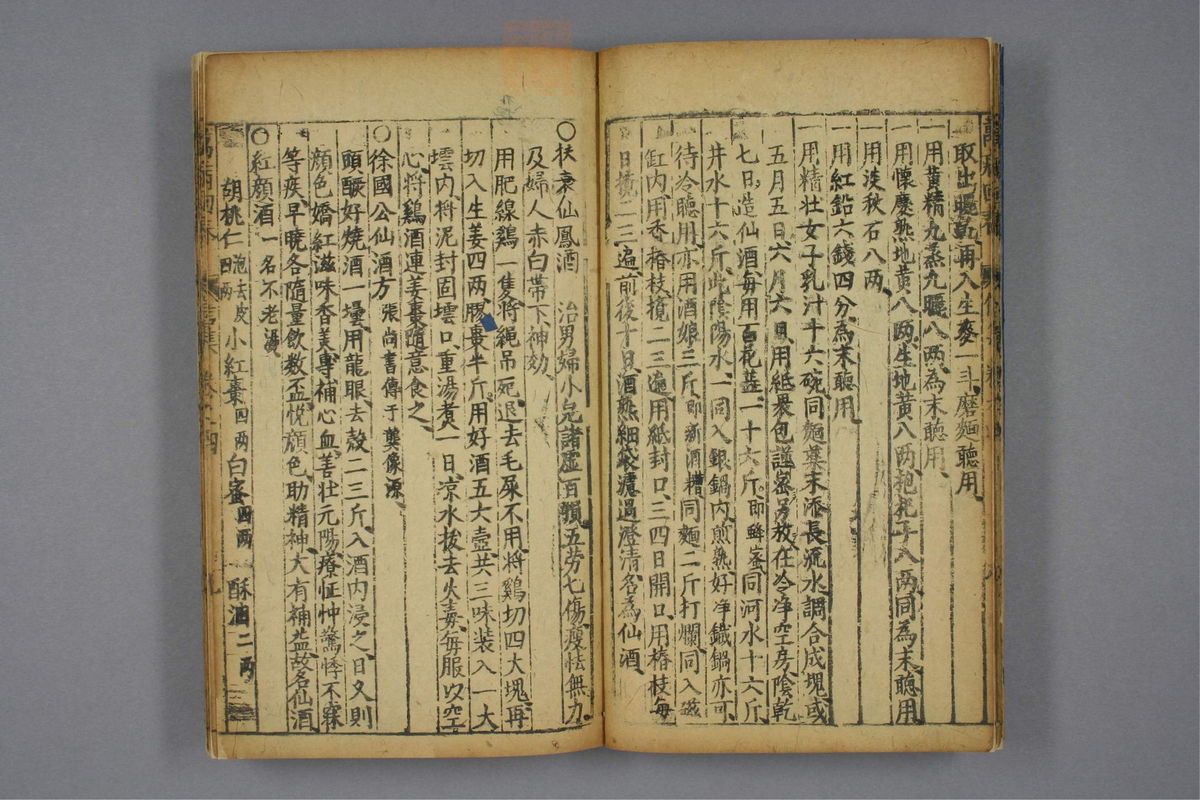 取出曬乾再入生麥一斗磨麵聽用
一用黃精九蒸九曬八兩為末聽用
一用懷慶熟地黃八兩生地黃八兩枸杞子八兩同為末聽用
一用淡秋石八兩
一用紅鉛六錢四分為末聽用
一用精壯女子乳汁十六碗同麵藥末添長流水調合成塊或
五月五日六月六日用紙裹包謹密另放在冷淨空房陰乾
七日造仙酒每用百花蓝一十六斤即蜂蜜同河水十六斤
井水十六斤此陰陽水一同入銀鍋內煎熟好淨鐵鍋亦可
待冷聽用亦用酒娘三斤即新酒糟同麵二斤打爛同入磁
缸內用香椿枝攪二三遍用紙封口三四日開口用椿枝每
日攪二三遍前後十日酒熟細袋濾過澄清名為仙酒
○扶衰仙鳳酒 治男婦小兒諸虛百損五劳七傷瘦怯無力
及婦人赤白帶下神効
用肥線鷄一隻將繩吊死退去毛屎不用將鷄切四大塊再
切入生姜四兩膠棗半斤用好酒五大壺共三味装入一大
壜內将泥封固壜口重湯煮一日凉水拔去火毒每服以空
心將鷄酒連姜棗隨意食之
○徐國公仙酒方 張尚書傳于龔像源
頭醁好燒酒一壜用龍眼去殼二三斤入酒內浸之日久則
顔色嬌紅滋味香美專補心血善壯元陽療怔忡驚悸不寐
等疾早曉各隨量飲数盃悅顔色助精神大有補益故名仙酒
○紅顔酒 一名不老湯
胡桃仁 泡去皮四兩 小紅棗 四兩 白蜜 四兩 酥油 二兩